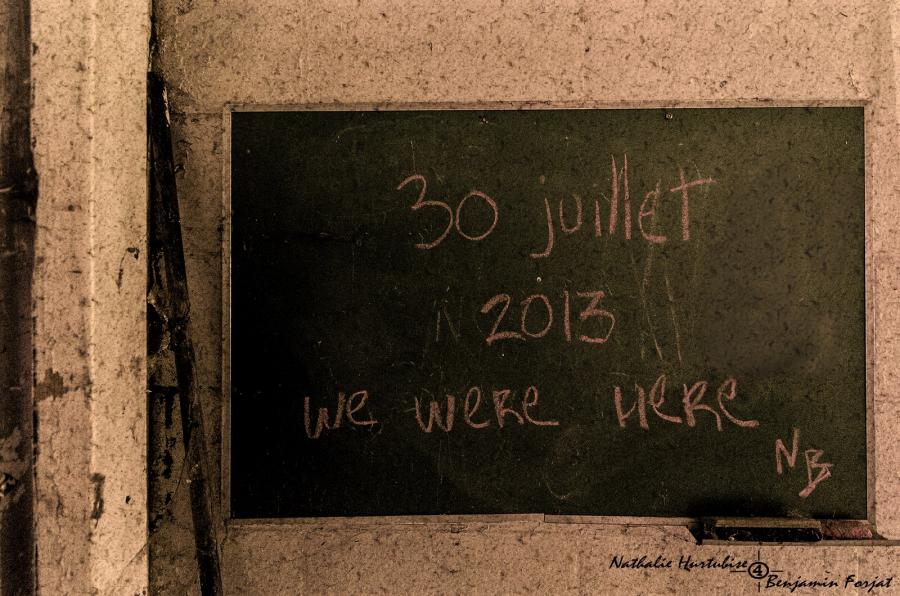 30 juillet
2013
we were Here
NB
Nathalie Hurtubise
4
Benjamin Forjat